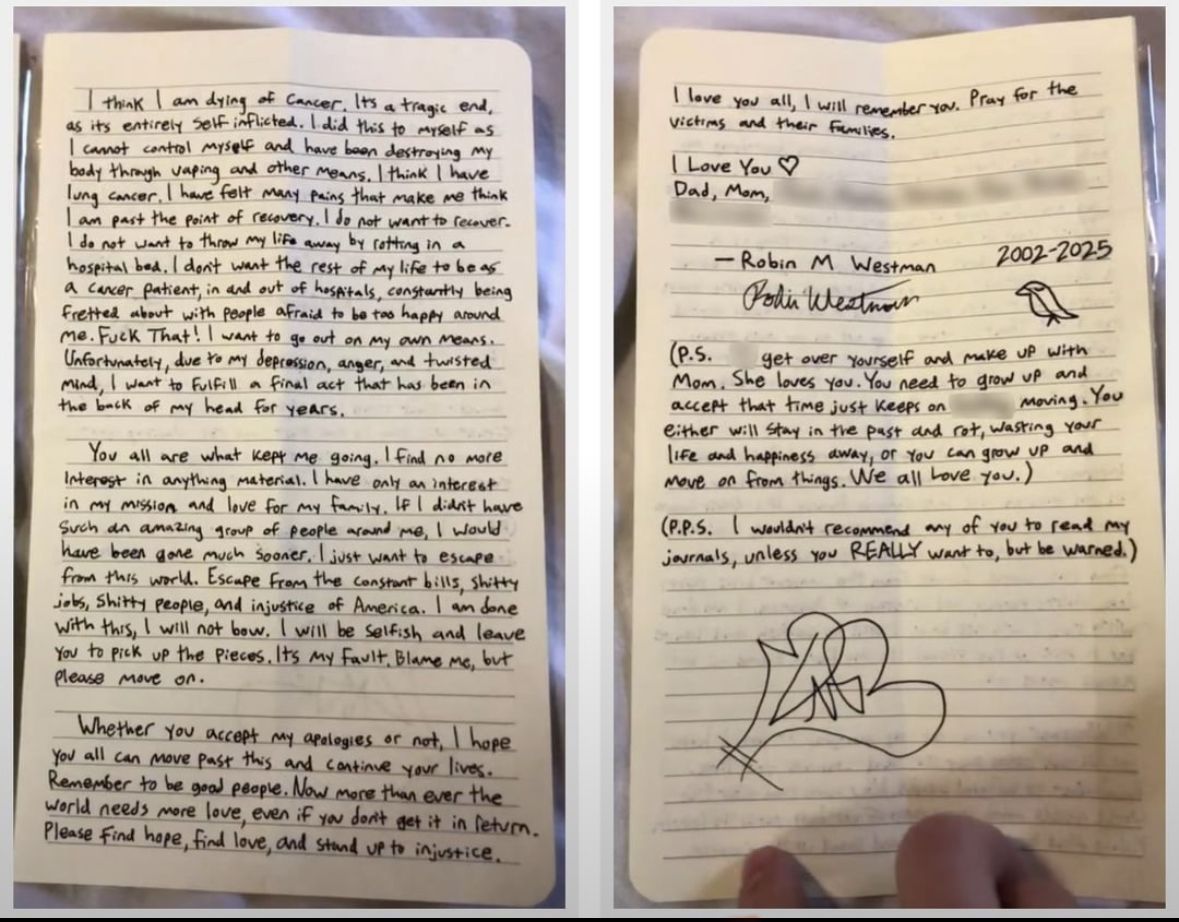 I think I am dying of cancer. Its a tragic end,
as its entirely self inflicted. I did this to myself as
I cannot control myself and have been destroying my
body through vaping and other means. I think I have
lung cancer. I have felt many pains that make me think
I am past the point of recovery. I do not want to recover.
I do not want to throw my life away by rotting in a
hospital bed. I don't want the rest of my life to be as
a cancer patient, in and out of hospitals, constantly being
fretted about with people afraid to be too happy around
me. Fuck That! I want to go out on my own means.
Unfortunately, due to my depression, anger, and twisted
mind, I want to fulfill a final act that has been in
the back of my head for years.
You all are what kept me going. I find no more
interest in anything material. I have only an interest
in my mission and love for my family. If I didn't have
such an amazing group of people around me, I would
have been gone much sooner. I just want to escape
from this world. Escape from the constant bills, shitty
jobs, shitty people, and injustice of America. I am done
with this, I will not bow. I will be selfish and leave
you to pick up the pieces. Its my fault. Blame me, but
please move on.
Whether you accept my apologies or not, I hope
you all can move past this and continue your lives.
Remember to be good people. Now more than ever the
world needs more love, even if you don't get it in return.
Please find hope, find love, and stand up to injustice.
I love you all, I will remember you. Pray for the
victims and their families.
I Love You ♡
Dad, Mom,
— Robin M Westman 2002-2025
Robin Westman
(P.S. get over yourself and make up with
Mom. She loves you. You need to grow up and
accept that time just keeps on moving. You
either will stay in the past and rot, wasting your
life and happiness away, or you can grow up and
move on from things. We all Love you.)
(P.P.S. I wouldn't recommend any of you to read my
journals, unless you REALLY want to, but be warned.)